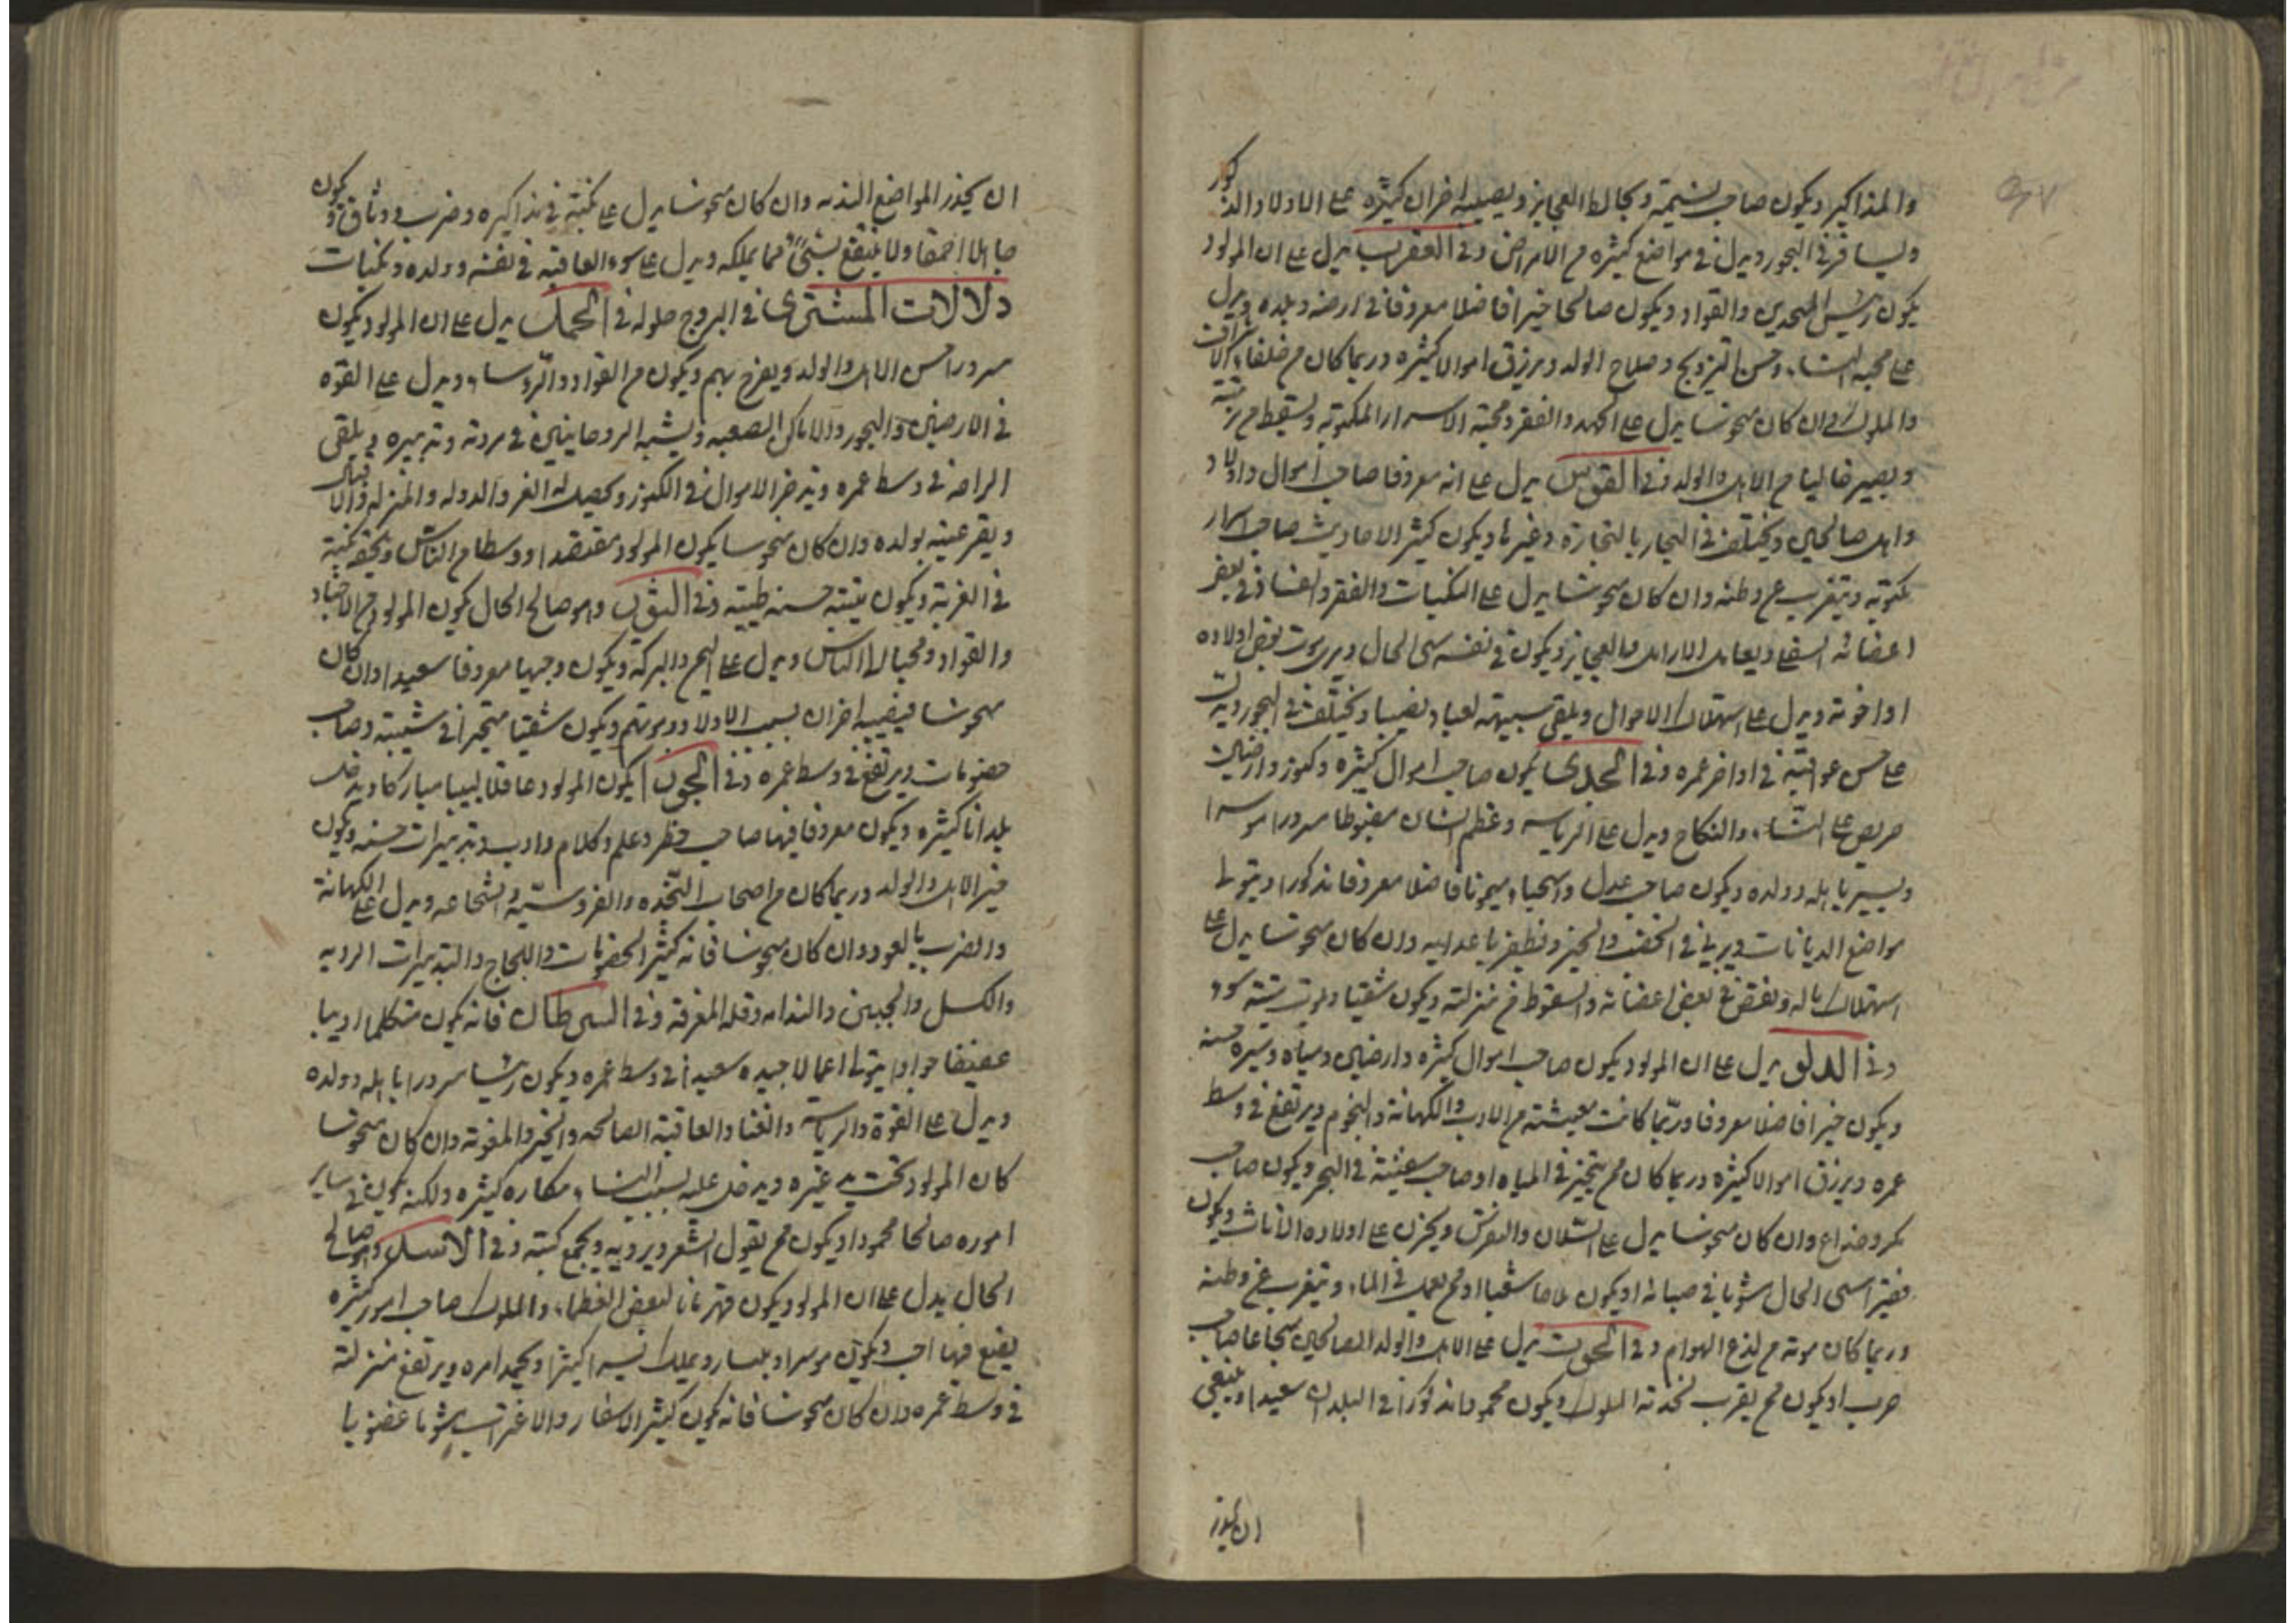 والمذاكير ويكون صاحب نميمة ويخالط العجايز ويصيبه احزان كثيره على الاولاد والذكور
ويسافر في البحور ويدل في مواضع كثيره من الامراض وفي العقرب يدل على ان المولود
يكون رئيس والقواد ويكون صالحا خيرا فاضلا معروفا في ارضه وبلده ويدل
على محبه النساء وحسن التزويج وصلاح الولد ويرزق اموالا كثيره وربما كان من خلفاء الاشراف
والملوك وان كان منحوسا يدل على الجهد والفقر ومحبة الاسرار المكتوبه ويسقط من مرتبته
ويصير خاليا من الاهل والولد وفي القوس يدل على انه معروفا صاحب اموال واولاد
واهل صالحين ويختلف في التجارب التجارة وغيرها ويكون كثير الاحاديث صاحب اسرار
مكتوبه ويتغرب عن وطنه وان كان منحوسا يدل على النكبات والفقر في بعض
اعضائه السفلى ويعامل الارامل والعجايز ويكون في نفسه سئ الحال ويرى موت بعض اولاده
او اخوته ويدل على استهلاك الاموال ويلقى بسببهم ويختلف في البحور ويدل
على حسن عواقبه في اواخر عمره وفي الجدى يكون صاحب اموال كثيره وكنوز وارضين
حريص على النساء والنكاح ويدل على الرياسه وعظم الشان مغبوطا مسرورا موسرا
ويسر باهله وولده ويكون صاحب عدل واستحياء ميمونا فاضلا معروفا مذكورا ويتولى
مواضع الديانات ويربى في الخفض والخير ويظفر باعدائه وان كان منحوسا يدل على
استهلاك ماله ونقص في بعض اعضائه والسقوط من منزلته ويكون شقيا ويموت ميتة سوء
وفي الدلو يدل على ان المولود يكون صاحب اموال كثيره وارضين ومياه وسيره حسنه
ويكون خيرا فاضلا معروفا وربما كانت معيشته من الادب والكهانة والنجوم ويرتفع في وسط
عمره ويرزق اموالا كثيره وربما كان ممن يتجر في المياه او صاحب سفينة في البحر ويكون صاحب
مكر وخداع وان كان منحوسا يدل على ويحزن على اولاده الاناث ويكون
فقيرا سئ الحال مشوبا في صبائه او يكون ملاحا شقيا او ممن يعمل في الماء ويتغرب عن وطنه
وربما كان موته من لذع الهوام وفي الحوت يدل على الاهل والولد الصالحين شجاعا صاحب
حرب او يكون ممن يقرب لخدمة الملوك ويكون محمودا مذكورا في البلدان سعيدا وينبغي
ان يحذر
ان يحذر المواضع النديه وان كان منحوسا يدل على نكبته في مذاكيره وضرب ووثاق ويكون
جاهلا احمقا ولا ينتفع بشئ مما يملكه ويدل على سوء العاقبه في نفسه وولده ونكبات
دلالات المشترى في البروج حلوله في الحمل يدل على ان المولود يكون
مسرورا حسن الاهل والولد ويفرح بهم ويكون من القواد والرؤساء ويدل على القوه
في الارضين والبحور والاماكن الصعبه ويشبه الروحانيين في مروته وتدبيره ويلقى
الراحه في وسط عمره ويدخر الاموال في الكنوز ويحصل له العز والدوله والمنزله والاقبال
ويقر عينيه بولده وان كان منحوسا يكون المولود مقتصدا ووسطا من الناس ويلحقه نكبة
في الغربة ويكون ميتته حسنه طيبه وفي الثور وهو صالح الحال يكون المولود من الاجناد
والقواد ومحبا الى الناس ويدل على اليمن والبركة ويكون وجيها معروفا سعيدا وان كان
منحوسا فيصيبه احزان بسبب الاولاد وموتهم ويكون شقيا متحيرا في شيبته وصاحب
خصومات ويرتفع في وسط عمره وفي الجوزا يكون المولود عاقلا لبيبا مباركا ويدخل
بلدانا كثيره ويكون معروفا فيها صاحب نظر وعلم وكلام وادب وتدبيرات حسنه ويكون
خير الاهل والولد وربما كان من اصحاب النجده والفروسيه والشجاعه ويدل على الكهانة
والضرب بالعود وان كان منحوسا فانه كثير الخصومات واللجاج والتدبيرات الرديه
والكسل والجبن والندامه وقله المعرفه وفي السرطان فانه يكون متكلما اديبا
عفيفا جوادا يتولى اعمالا جيده سعيدا في وسط عمره ويكون رئيسا مسرورا باهله وولده
ويدل على القوة والرياسه والغنا والعاقبة الصالحه والخير والمعونه وان كان منحوسا
كان المولود تحت يد غيره ويدخل عليه بسبب النساء مكاره كثيره ولكنه يكون في ساير
اموره صالحا محمودا ويكون ممن يقول الشعر ويرويه ويجمع كتبه وفي الاسد وهو صالح
الحال يدل على ان المولود يكون قهرمانا لبعض العظماء والملوك صاحب امور كثيره
يصنع فيها ويكون موسرا ويملك كثيرا ويحمد امره ويرتفع منزلته
في وسط عمره وان كان منحوسا فانه يكون كثير الاسفار والاغتراب مشوبا غضوبا